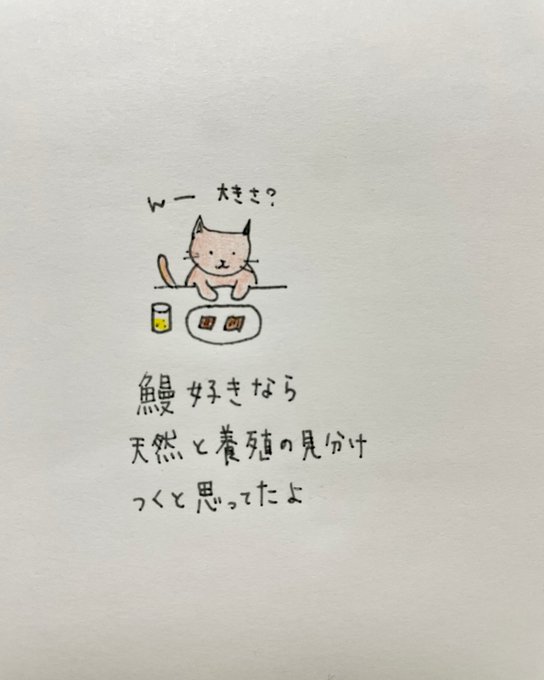 んー 大きさ?
鰻好きなら
天然と養殖の見分け
つくと思ってたよ